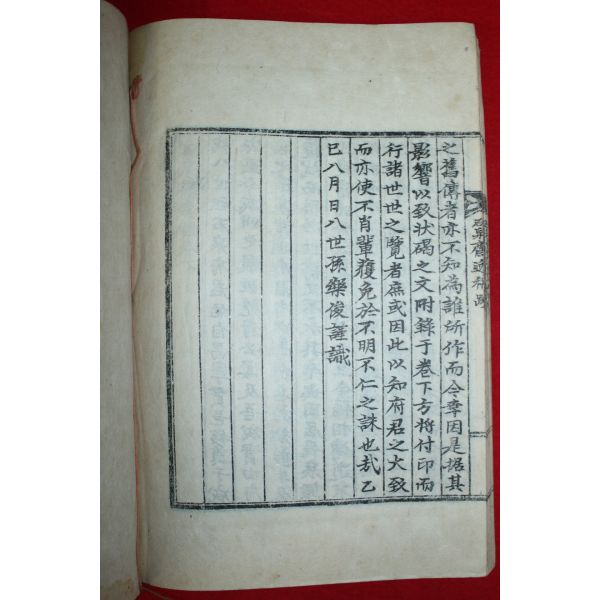 之舊傳者亦不知為誰所作而今幸因是据其
影響以致狀碣之文附錄于卷下方將付印而
行諸世世之覽者庶或因此以知府君之大致
而亦使不肖輩獲免於不明不仁之誅也哉乙
巳八月日八世孫樂俊謹識